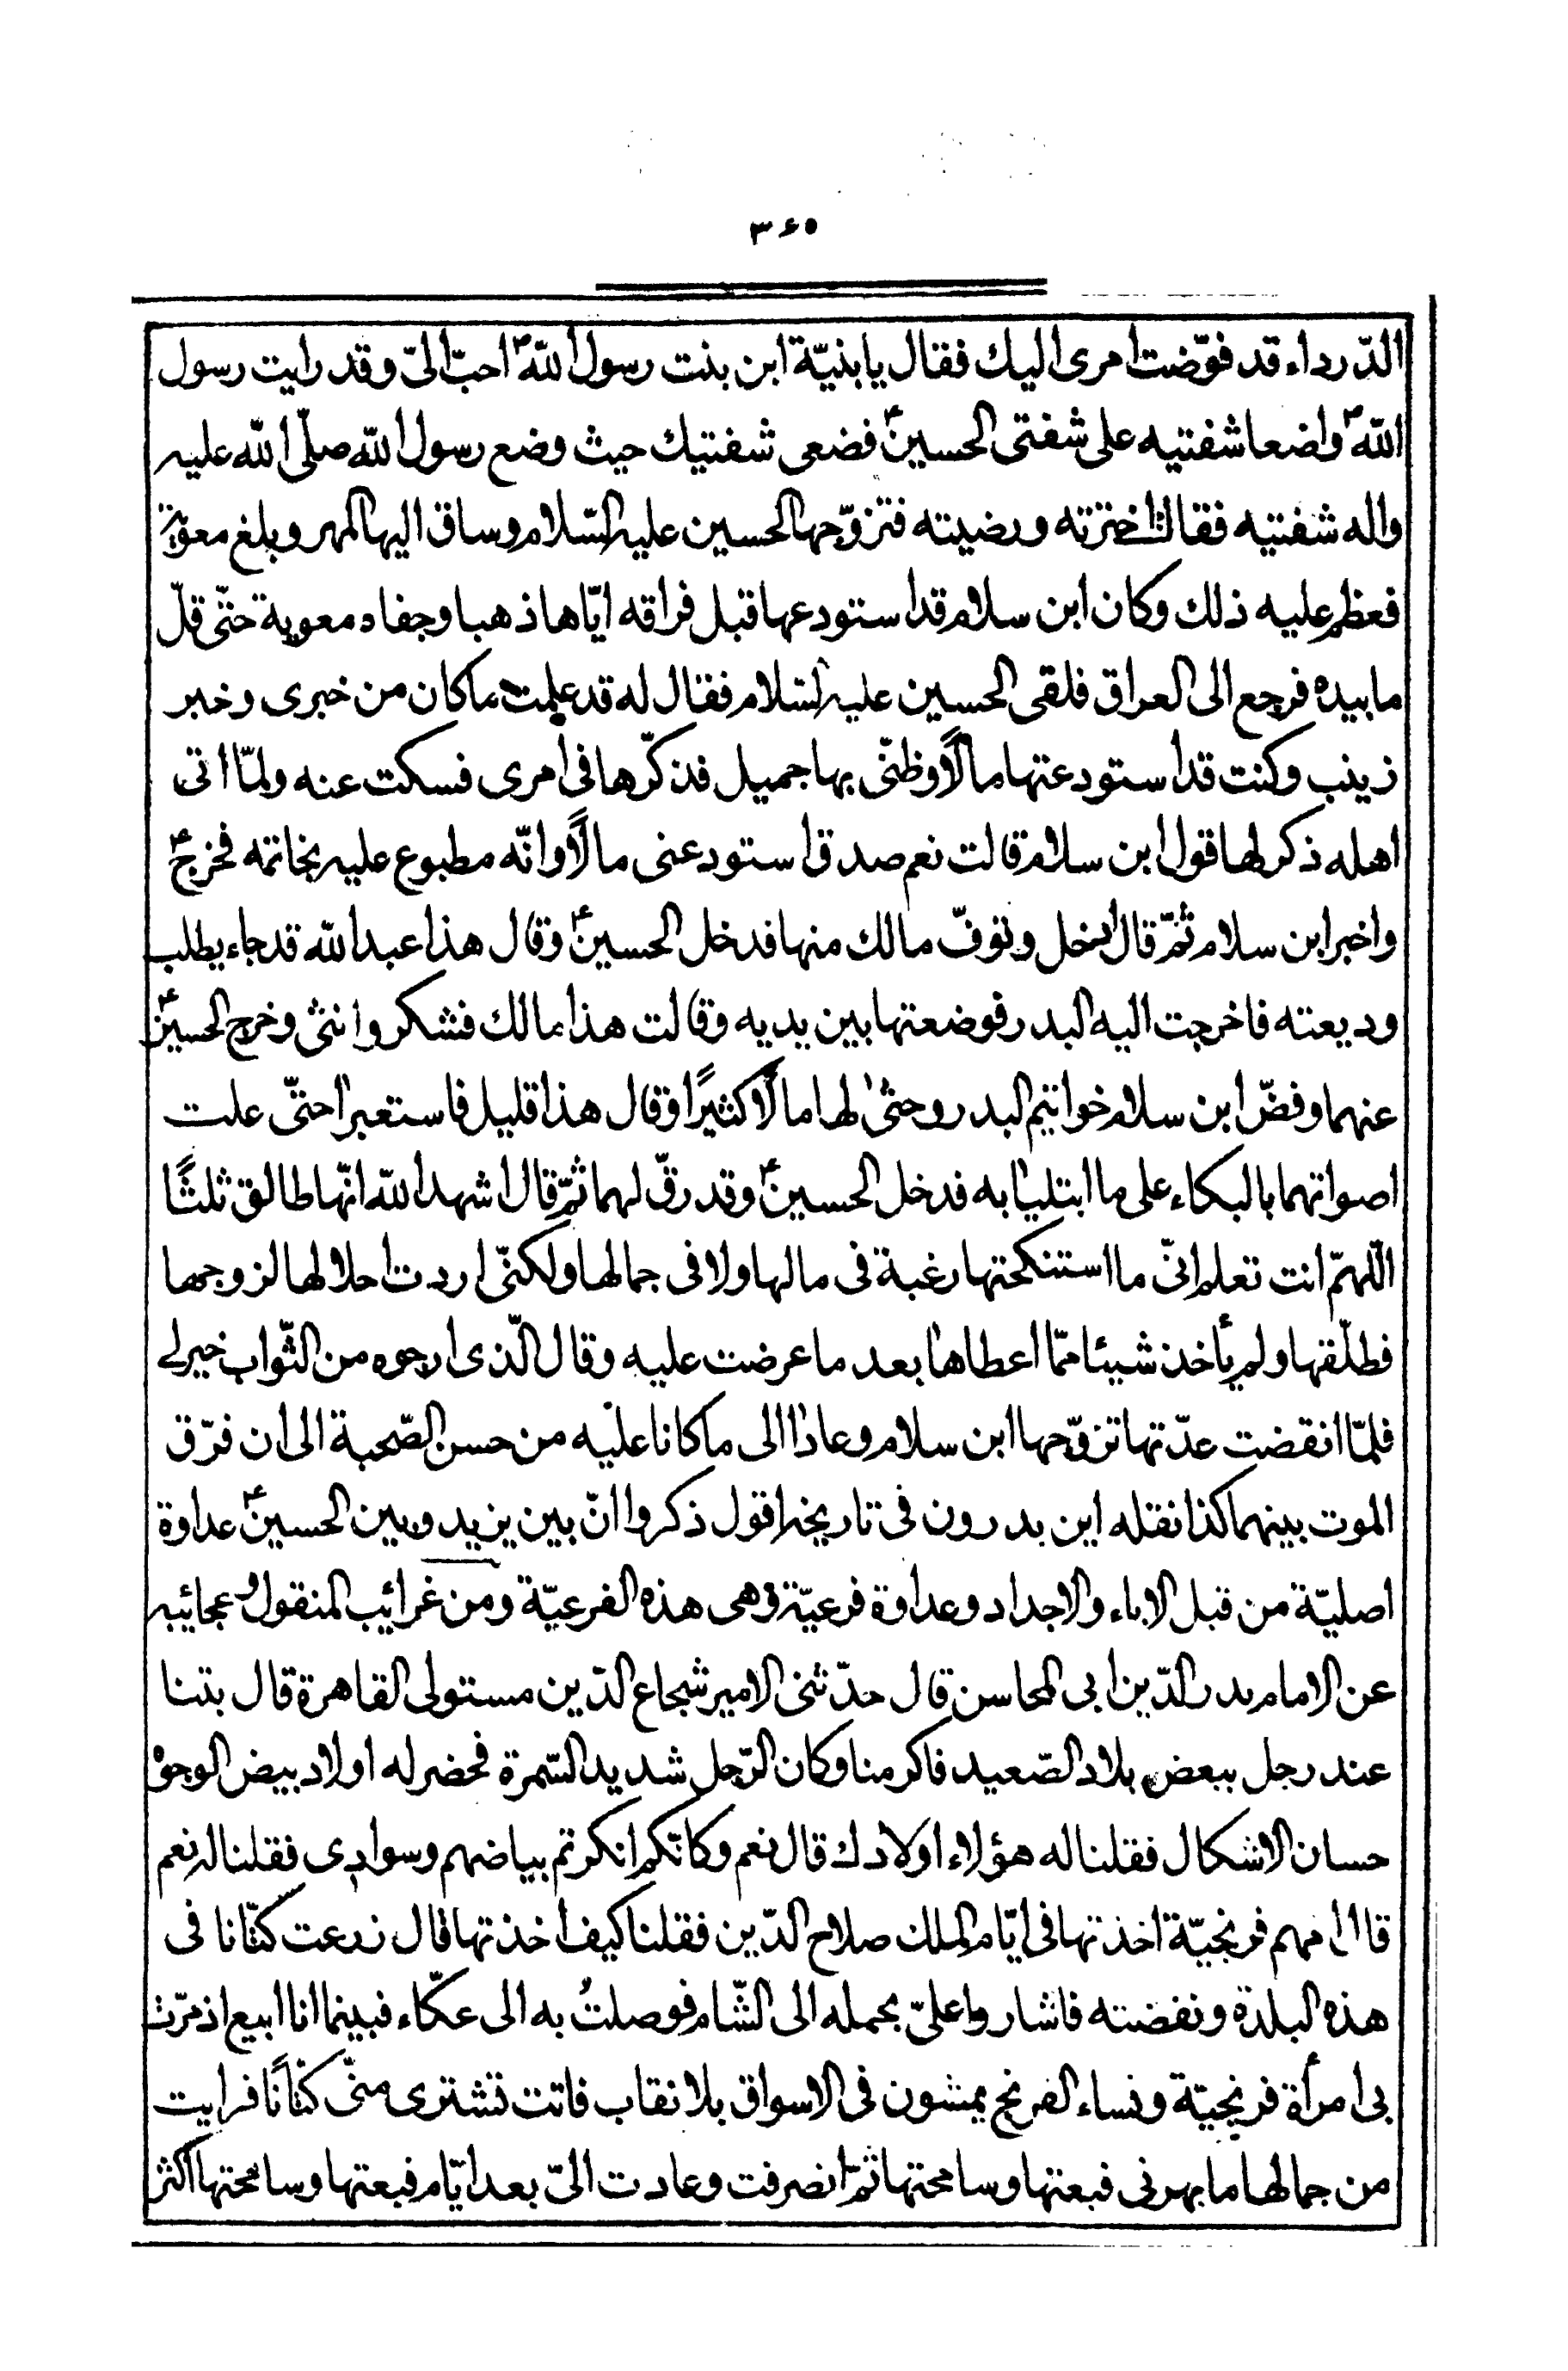 ٣۶٥
الدّرداء قد فوّضت امرى اليك فقال يا بنيّة ابن بنت رسول اللّه ص احبّ الىّ وقد رايت رسول
اللّه ص واضعا شفتيه على شفتى الحسين ع فضعى شفتيك حيث وضع رسول اللّه صلّى اللّه عليه
واله شفتيه فقالت اخترته ورضيته فتزوّجها الحسين عليه السّلام وساق اليها المهر وبلغ معوية
فعظم عليه ذلك وكان ابن سلام قد استودعها قبل فراقه ايّاها ذهبا وجفاه معوية حتّى قلّ
ما بيده فرجع الى العراق فلقى الحسين عليه السّلام فقال له قد علمت ما كان من خبرى وخبر
زينب وكنت قد استودعتها مالًا وظنّى بها جميل فذكّرها فى امرى فسكت عنه ولمّا اتى
اهله ذكر لها قول ابن سلام قالت نعم صدق استودعنى مالًا وانّه مطبوع عليه بخاتمه فخرج ع
واخبر ابن سلام ثمّ قال ادخل وتوفّ مالك منها فدخل الحسين ع وقال هذا عبد اللّه قد جاء يطلب
وديعته فاخرجت اليه البدر فوضعتها بين يديه وقالت هذا مالك فشكر واثنى وخرج الحسين ع
عنهما وفضّ ابن سلام خواتيم البدر وحثى لها مالًا كثيرًا وقال هذا قليل فاستعبرا حتّى علت
اصواتهما بالبكاء على ما ابتليا به فدخل الحسين ع وقد رقّ لهما ثمّ قال اشهد اللّه انّها طالق ثلثًا
اللّهمّ انت تعلم انّى ما استنكحتها رغبة فى مالها ولا فى جمالها ولكنّى اردت احلالها لزوجها
فطلّقها ولم يأخذ شيئا ممّا اعطاها بعد ما عرضت عليه وقال الّذى ارجوه من الثّواب خير لى
فلمّا انقضت عدّتها تزوّجها ابن سلام وعادا الى ما كانا عليه من حسن الصّحبة الى ان فرّق
الموت بينهما كذا نقله ابن بدرون فى تاريخه اقول ذكروا انّ بين يزيد وبين الحسين ع عداوة
اصليّة من قبل الاباء والاجداد وعداوة فرعيّة وهى هذه الفرعيّة ومن غرائب المنقول وعجائبه
عن الامام بدر الدّين ابى المحاسن قال حدّثنى الامير شجاع الدّين مستولى القاهرة قال بتنا
عند رجل ببعض بلاد الصّعيد فاكرمنا وكان الرّجل شديد السّمرة فحضر له اولاد بيض الوجوه
حسان الاشكال فقلنا له هؤلاء اولادك قال نعم وكانّكم انكرتم بياضهم وسوادى فقلنا له نعم
قال امهم فرنجيّة اخذتها فى ايّام الملك صلاح الدّين فقلنا كيف اخذتها قال زرعت كتّانا فى
هذه البلدة ونفضته فاشاروا علىّ بحمله الى الشّام فوصلتُ به الى عكّاء فبينما انا ابيع اذ مرّت
بى امرأة فرنجيّة ونساء الفرنج يمشون فى الاسواق بلا نقاب فاتت تشترى منّى كتّانًا فرايت
من جمالها ما بهرنى فبعتها وسامحتها ثمّ انصرفت وعادت الىّ بعد ايّام فبعتها وسامحتها اكثر